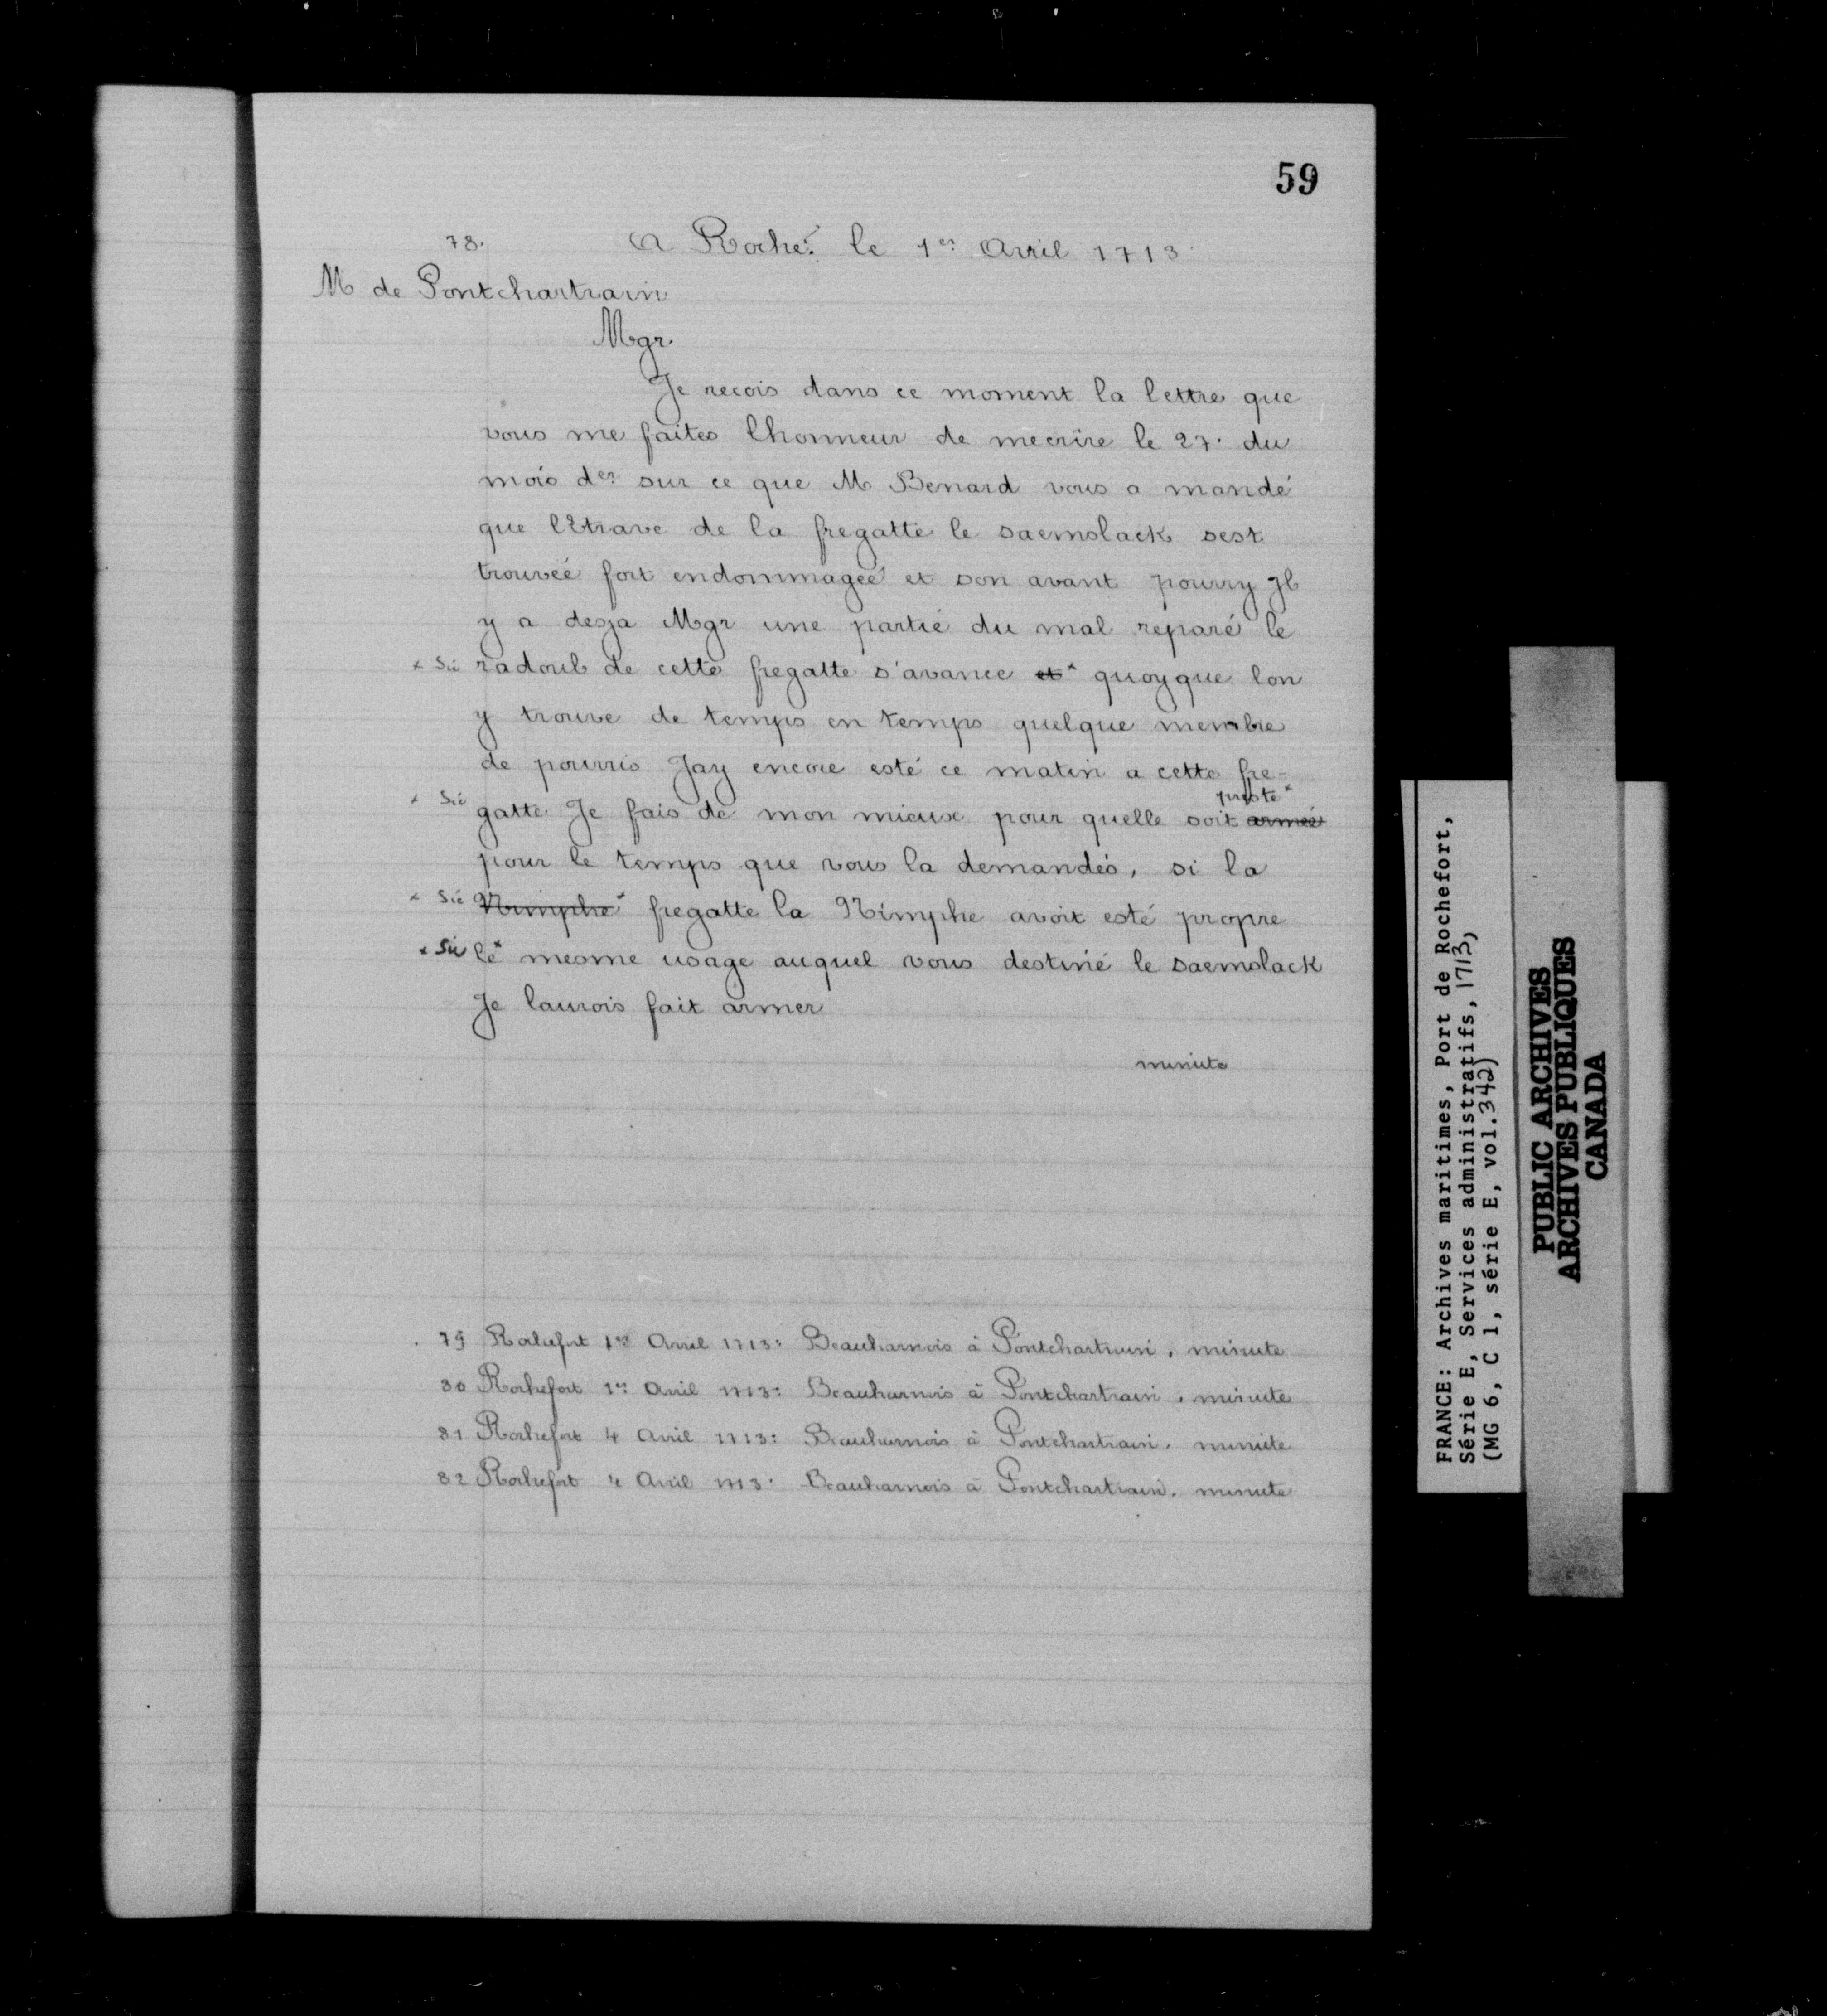 59
78. A Roche.t le 1er Avril 1713
M de Pontchartrain
Mgr
Je recois dans ce moment la lettre que
vous me faites lhonneur de mecrire le 27. du
mois der sur ce que M Benard vous a mandé
que lEtrave de la fregatte le saemslack sest
trouveé fort endommageé et son avant pourry Jl
y a desja Mgr une partie du mal reparé le
x Sic radoub de cette fregatte s'avance et x quoyque lon
y trouve de temps en temps quelque membre
de pourris Jay encore esté ce matin a cette fre-
preste x
x Sic gatte Je fais de mon mieux pour quelle soit armeé
pour le temps que vous la demandés, si la
x Sic Nimphe x fregatte la Nimphe avoit esté propre
x Sic le x mesme usage auquel vous destiné le saemslack
Je laurois fait armer
minute
79 Rochefort 1er Avril 1713: Beauharnois à Pontchartrain, minute
80 Rochefort 1er Avril 1713: Beauharnois à Pontchartrain, minute
81 Rochefort 4 Avril 1713: Beauharnois à Pontchartrain, minute
82 Rochefort 4 Avril 1713: Beauharnois à Pontchartrain, minute
FRANCE: Archives maritimes, Port de Rochefort,
Série E, Services administratifs, 1713,
(MG 6, C 1, série E, vol. 342)
PUBLIC ARCHIVES
ARCHIVES PUBLIQUES
CANADA